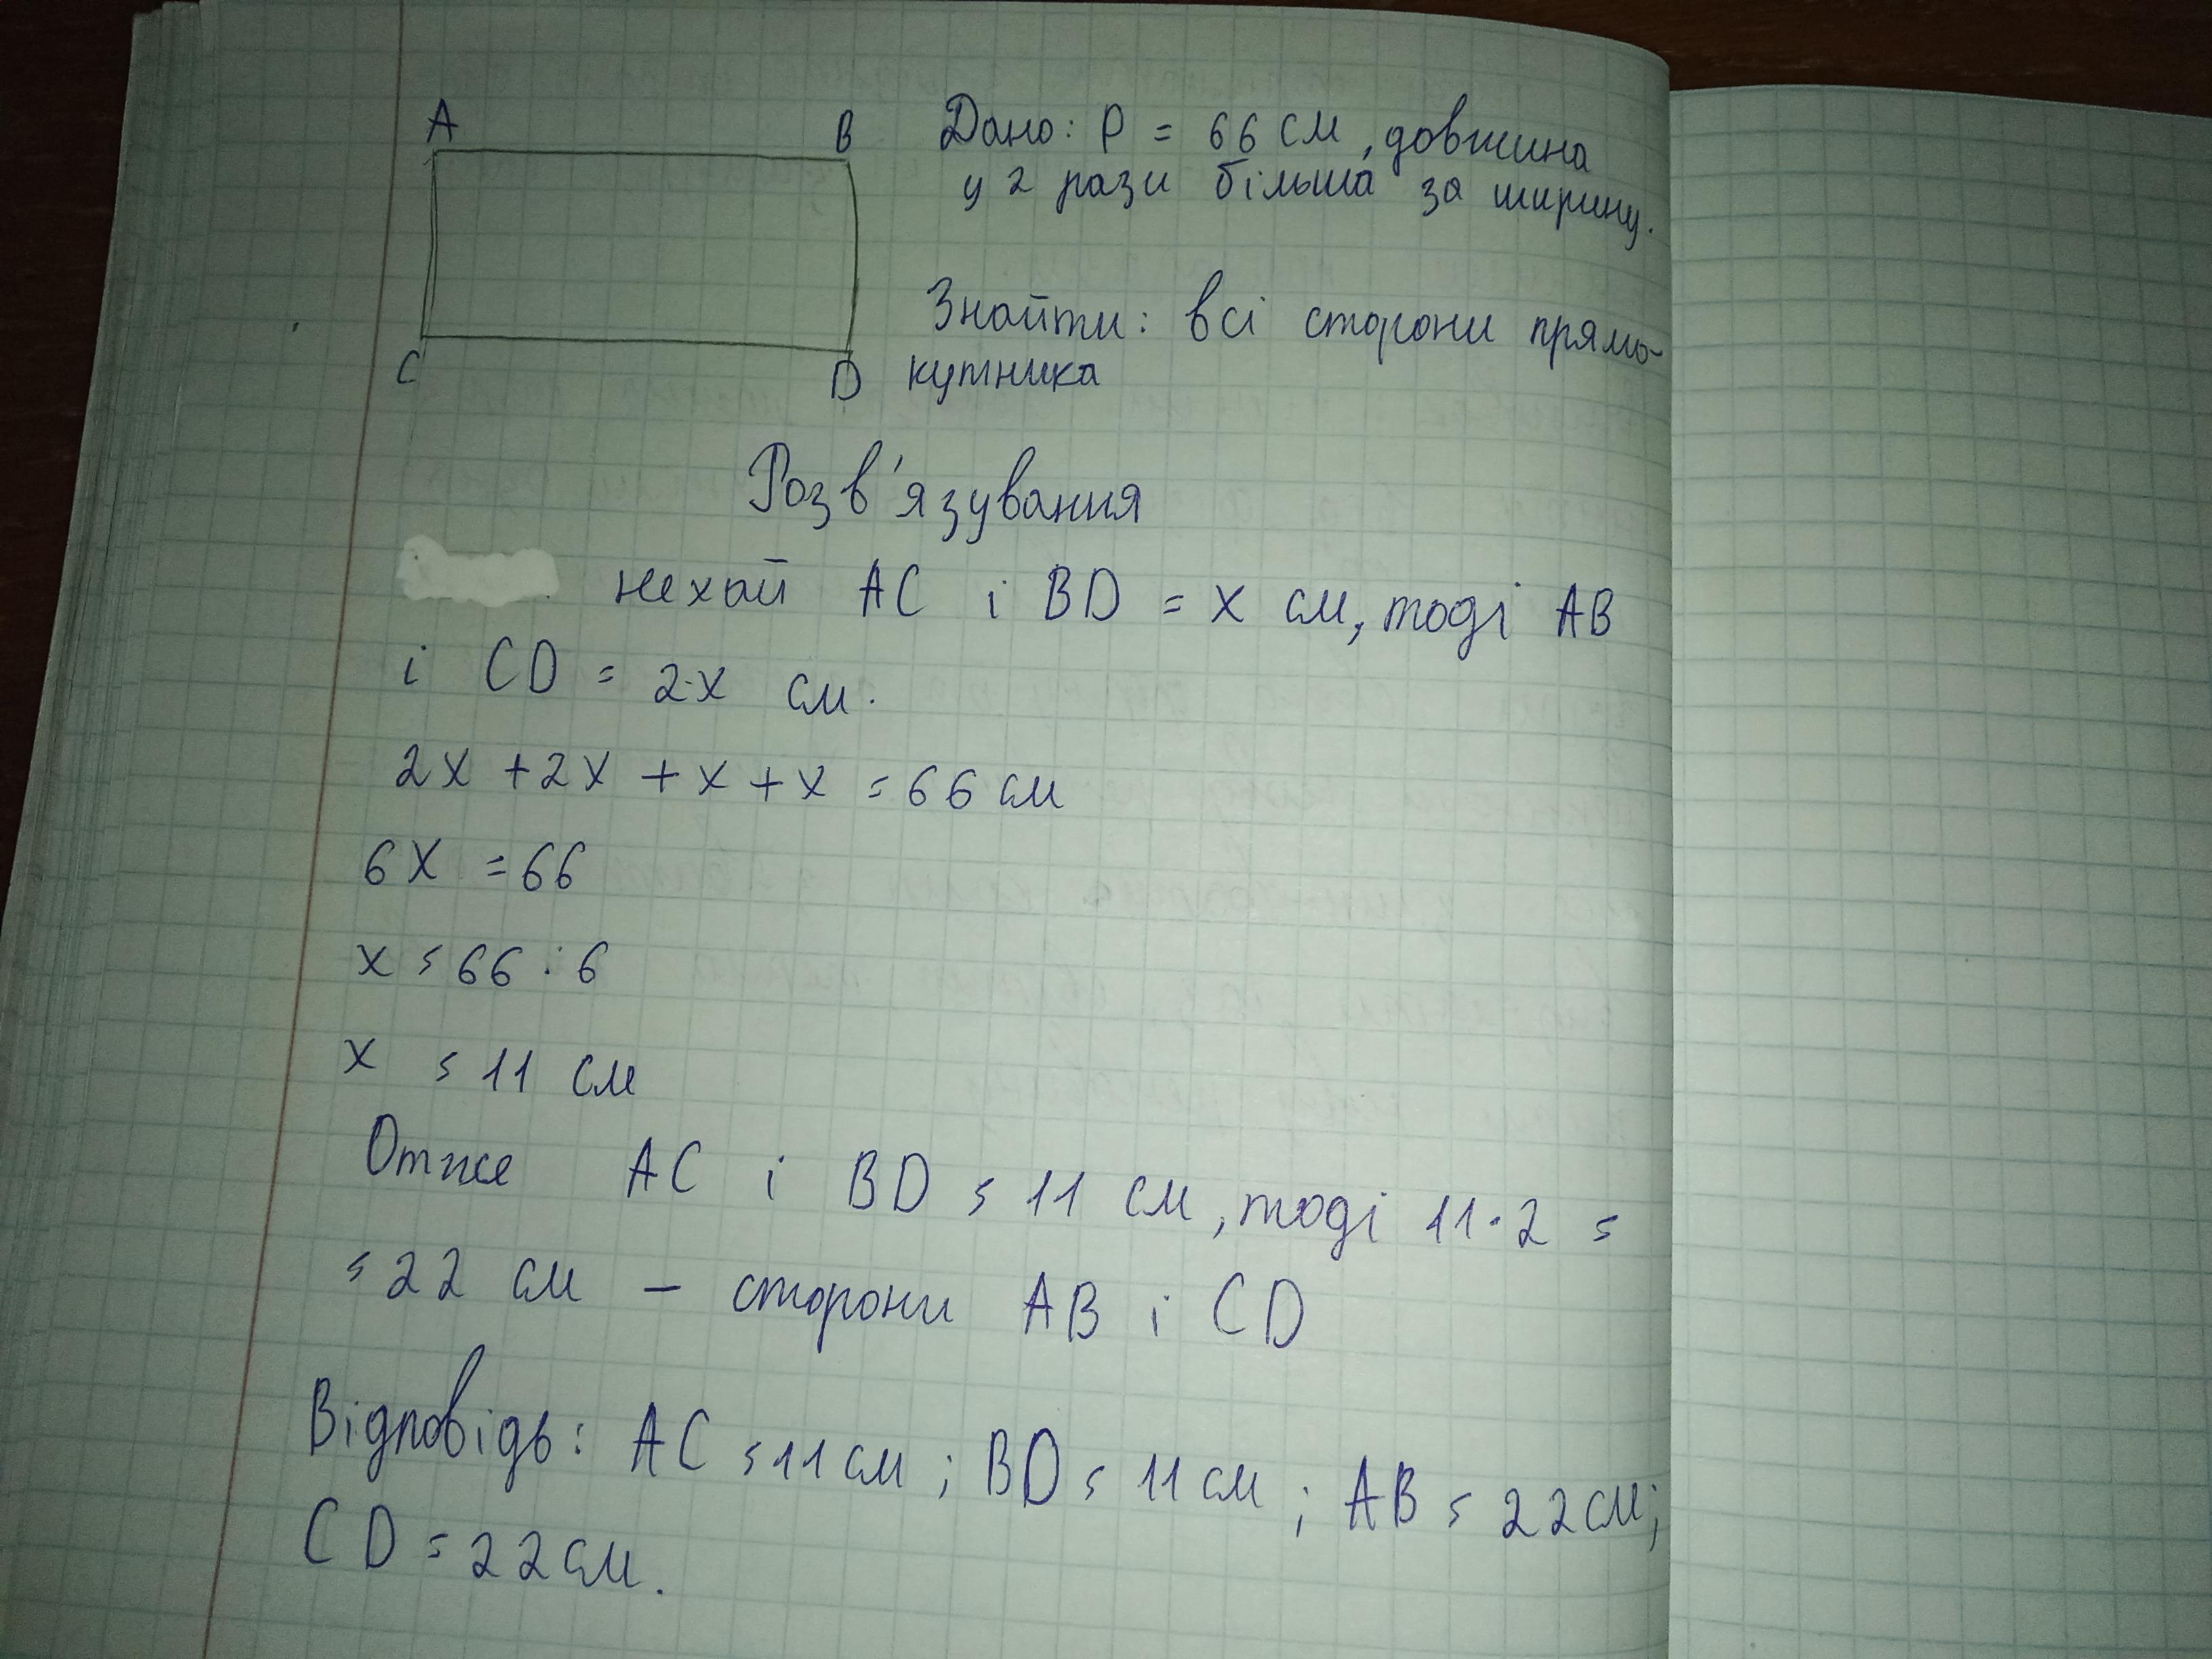 A
B
Дано: P = 66 см, довжина
у 2 рази більша за ширину.
Знайти: всі сторони прямо-
C
D
кутника
Розв'язування
нехай AC і BD = x см, тоді AB
і CD = 2·x см.
2x + 2x + x + x = 66 см
6x = 66
x = 66 : 6
x = 11 см
Отже AC і BD = 11 см, тоді 11·2 =
= 22 см – сторони AB і CD
Відповідь: AC = 11 см; BD = 11 см; AB = 22 см;
CD = 22 см.